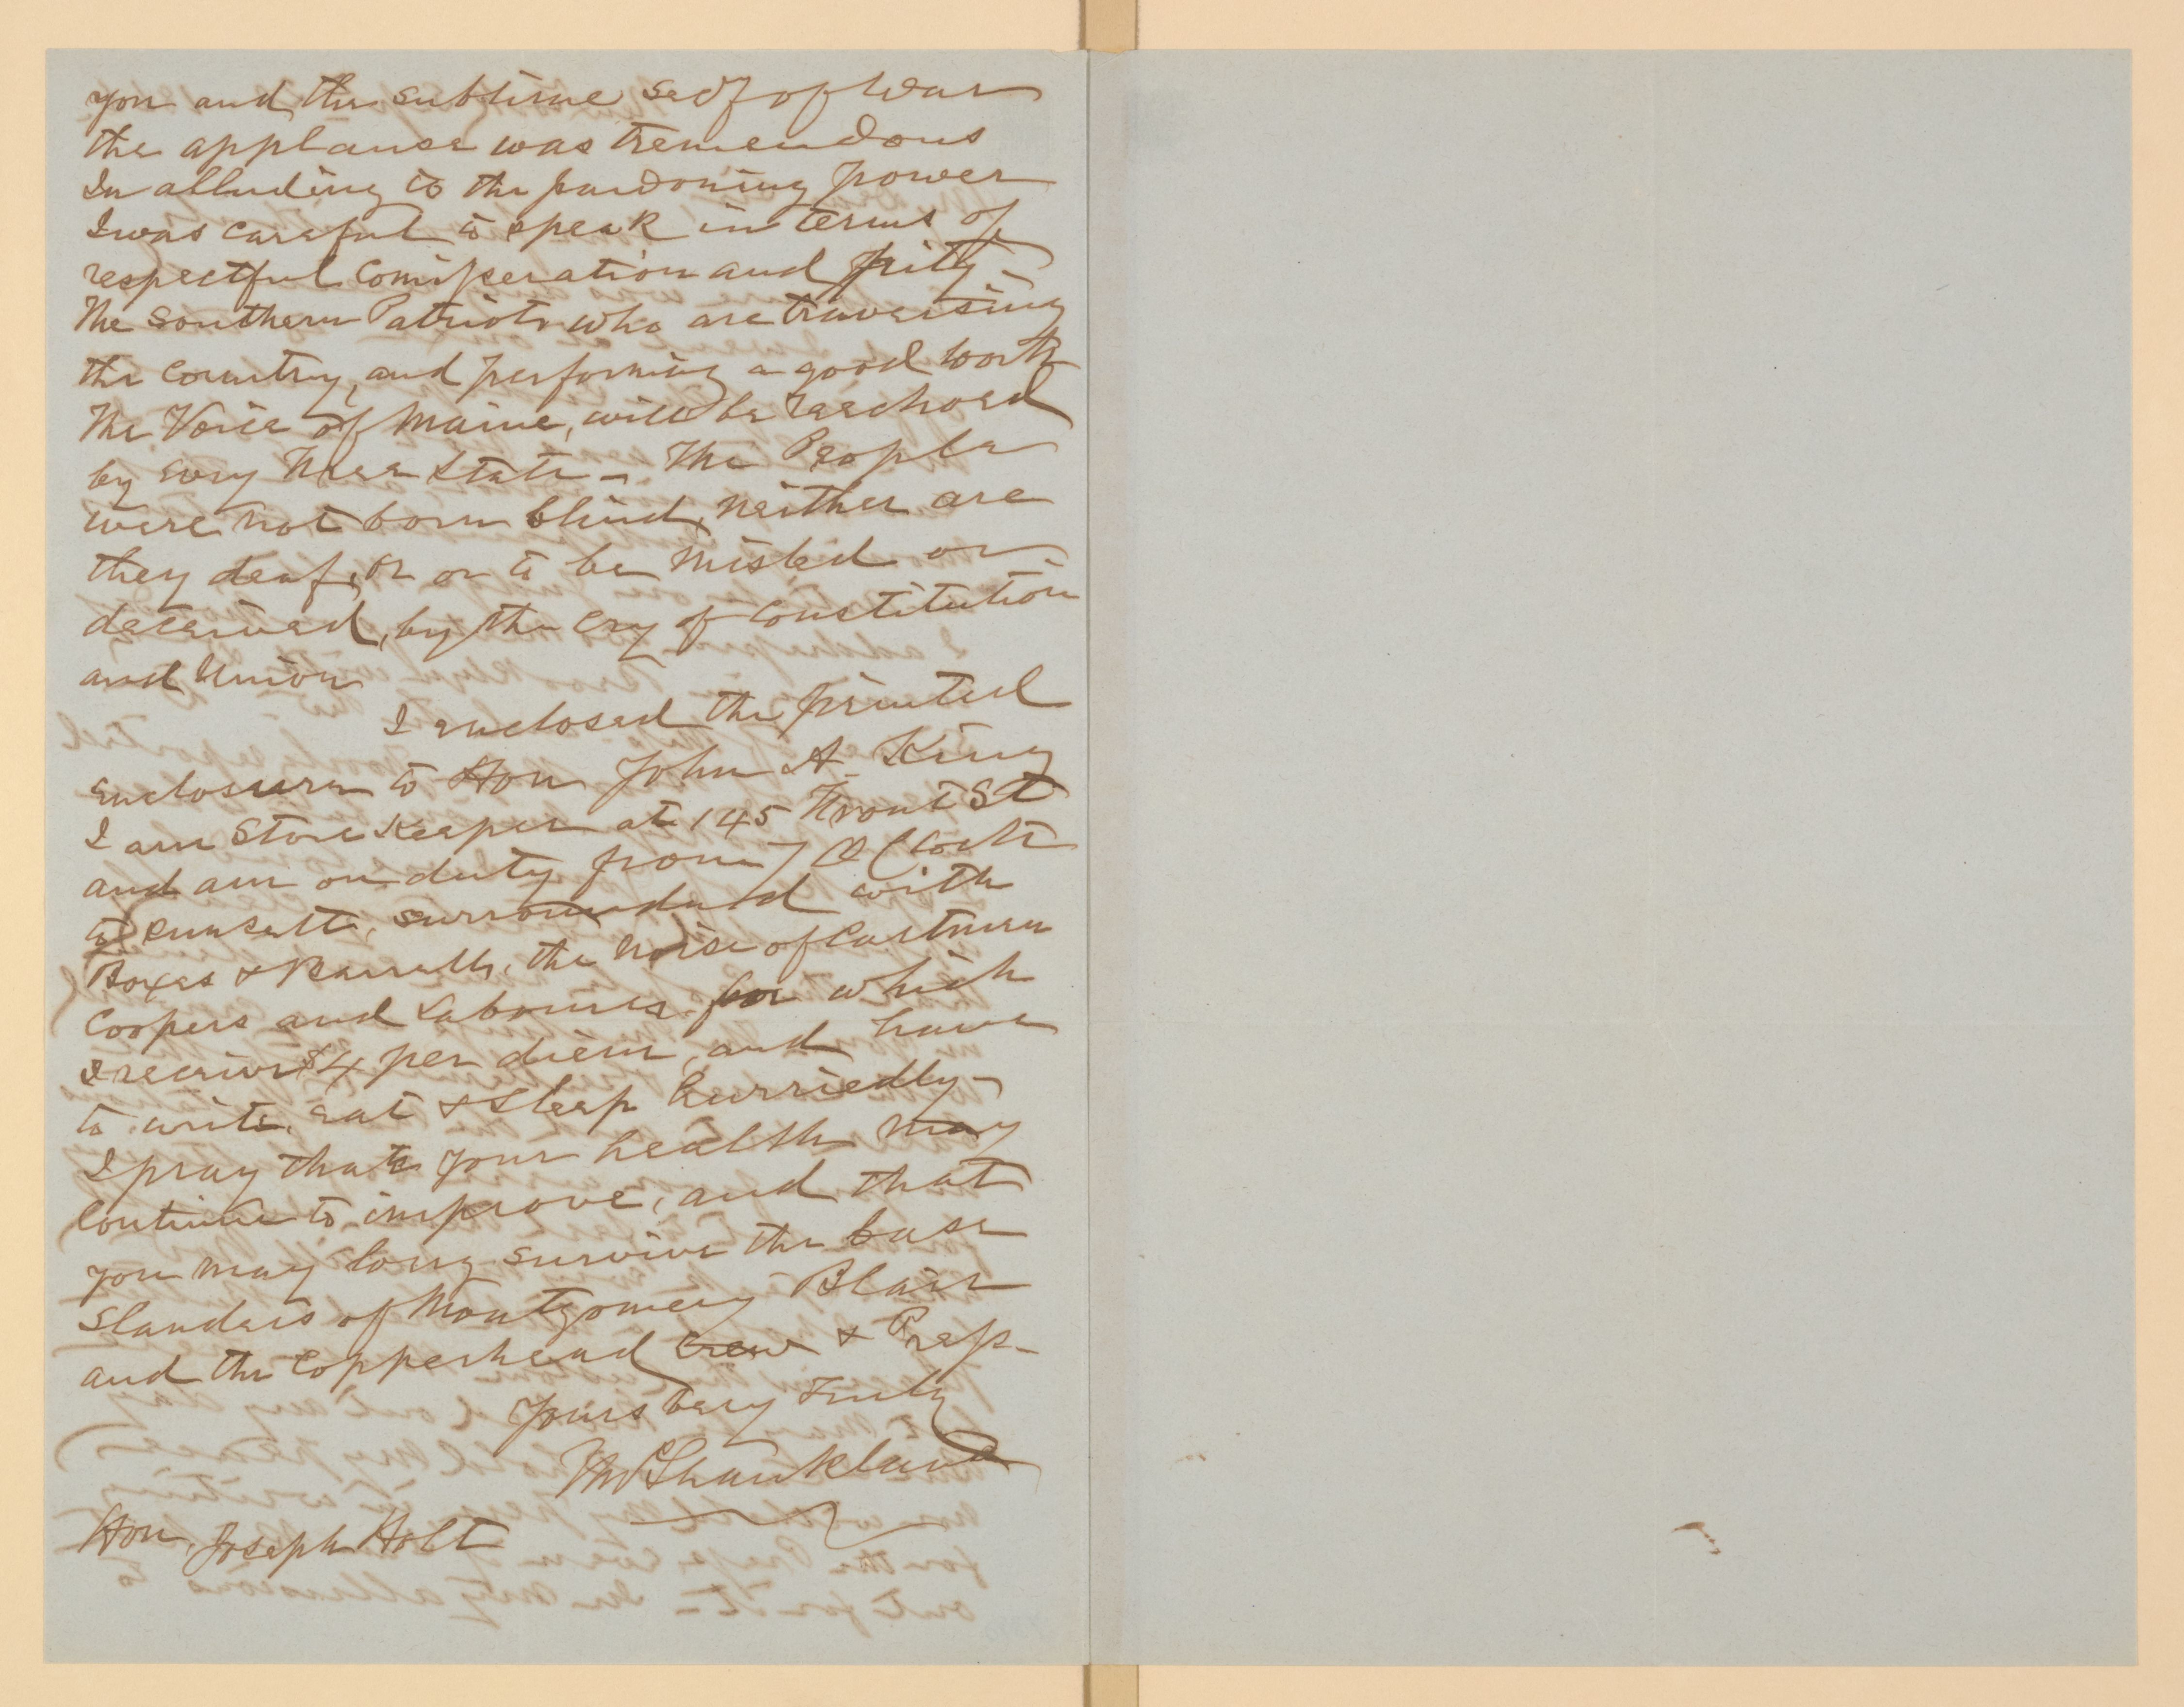 you and the sublime Secy of War
the applause was tremendous
In alluding to the pardoning power
I was careful to speak in terms of
respectful Comiseration and pity –
The Southern Patriots who are traversing
the country, and performing a good work
The Voice of Maine, will be reechoed
by evry Free State – The People
were not born blind, neither are
they deaf, or or to be misled or
deceived, by the cry of Constitution
and Union
I enclosed the printed
enclosure to Hon John A. King
I am Store Keeper at 145 Front St
and am on duty from 7 O Clock
to sunsett, surrounded with
Boxes & Barrells, the noise of Cartmen
Coopers and Labourers. for which
I receive $4 per diem, and have
to write, eat & sleep hurriedly –
I pray that your health may
continue to improve, and that
you may long survive the base
slanders of Montgomery Blair
and the Copperhead crew & Press –
Yours very Truly
Shankland
Hon. Joseph Holt